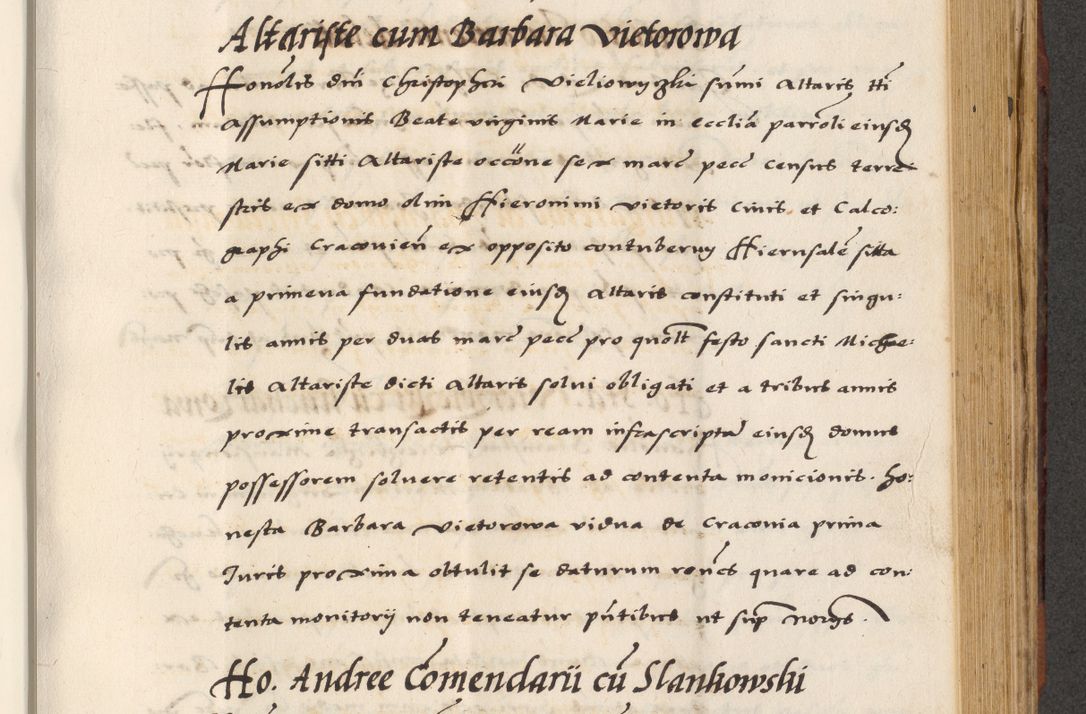 Altariste cum Barbara Vietorowa
Honolis dni Christopheri Vieliowyezki summi Altaris tti
Assumptionis Beate virginis Marie in ecclia parroli eiusdem
Marie sitti Altariste occone sex marc pecc census terre
stris ex domo olim Hieronimi Vietoris Civis et Calco:
graphi Cracovien ex opposito contuberny Hierusale sitta
a primeva fundatione eiusd Altaris constituti et singu:
lis annis per duas marc pecc pro quolt festo sancti Miche:
lis Altariste dicti Altaris solui obligati et a tribus annis
proxime transactis per ream infrascripta eiusd domus
possessorem soluere retentis ad contenta monicionis. Ho:
nesta Barbara Vietorowa vidua de Cracovia prima
Juris proxima obtulit se daturum rones quare ad con:
tenta monitorij non teneatur pntibus ut sup nores.
Ho. Andree Comendarii cu Slankowski